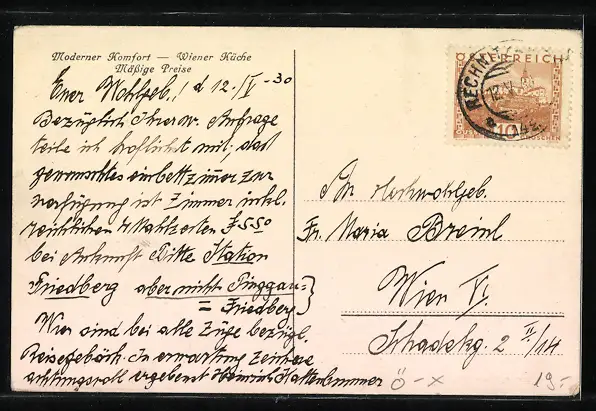 Moderner Komfort — Wiener Küche
Mäßige Preise
Euer Wohlgeb.! d 12./V-30
Bezüglich Ihrer w. Anfrage
teile ich höflichst mit, daß
gewünschtes einbettzimmer zur
verfügung ist Zimmer inkl.
reichlichen 4 Mahlzeiten
bei Ankunft Bitte Station
Friedberg aber nicht Pinggau=
= Friedberg
Wir sind bei alle Züge bezügl.
Reisegebäck. In erwartung zeichne
achtungsvoll ergebenst Heinrich
Ihr Hochwohlgeb.
Fr. Maria Breinl
Wien V.
2 II/14
ÖSTERREICH
10
RECHN
Ö - x
19.-